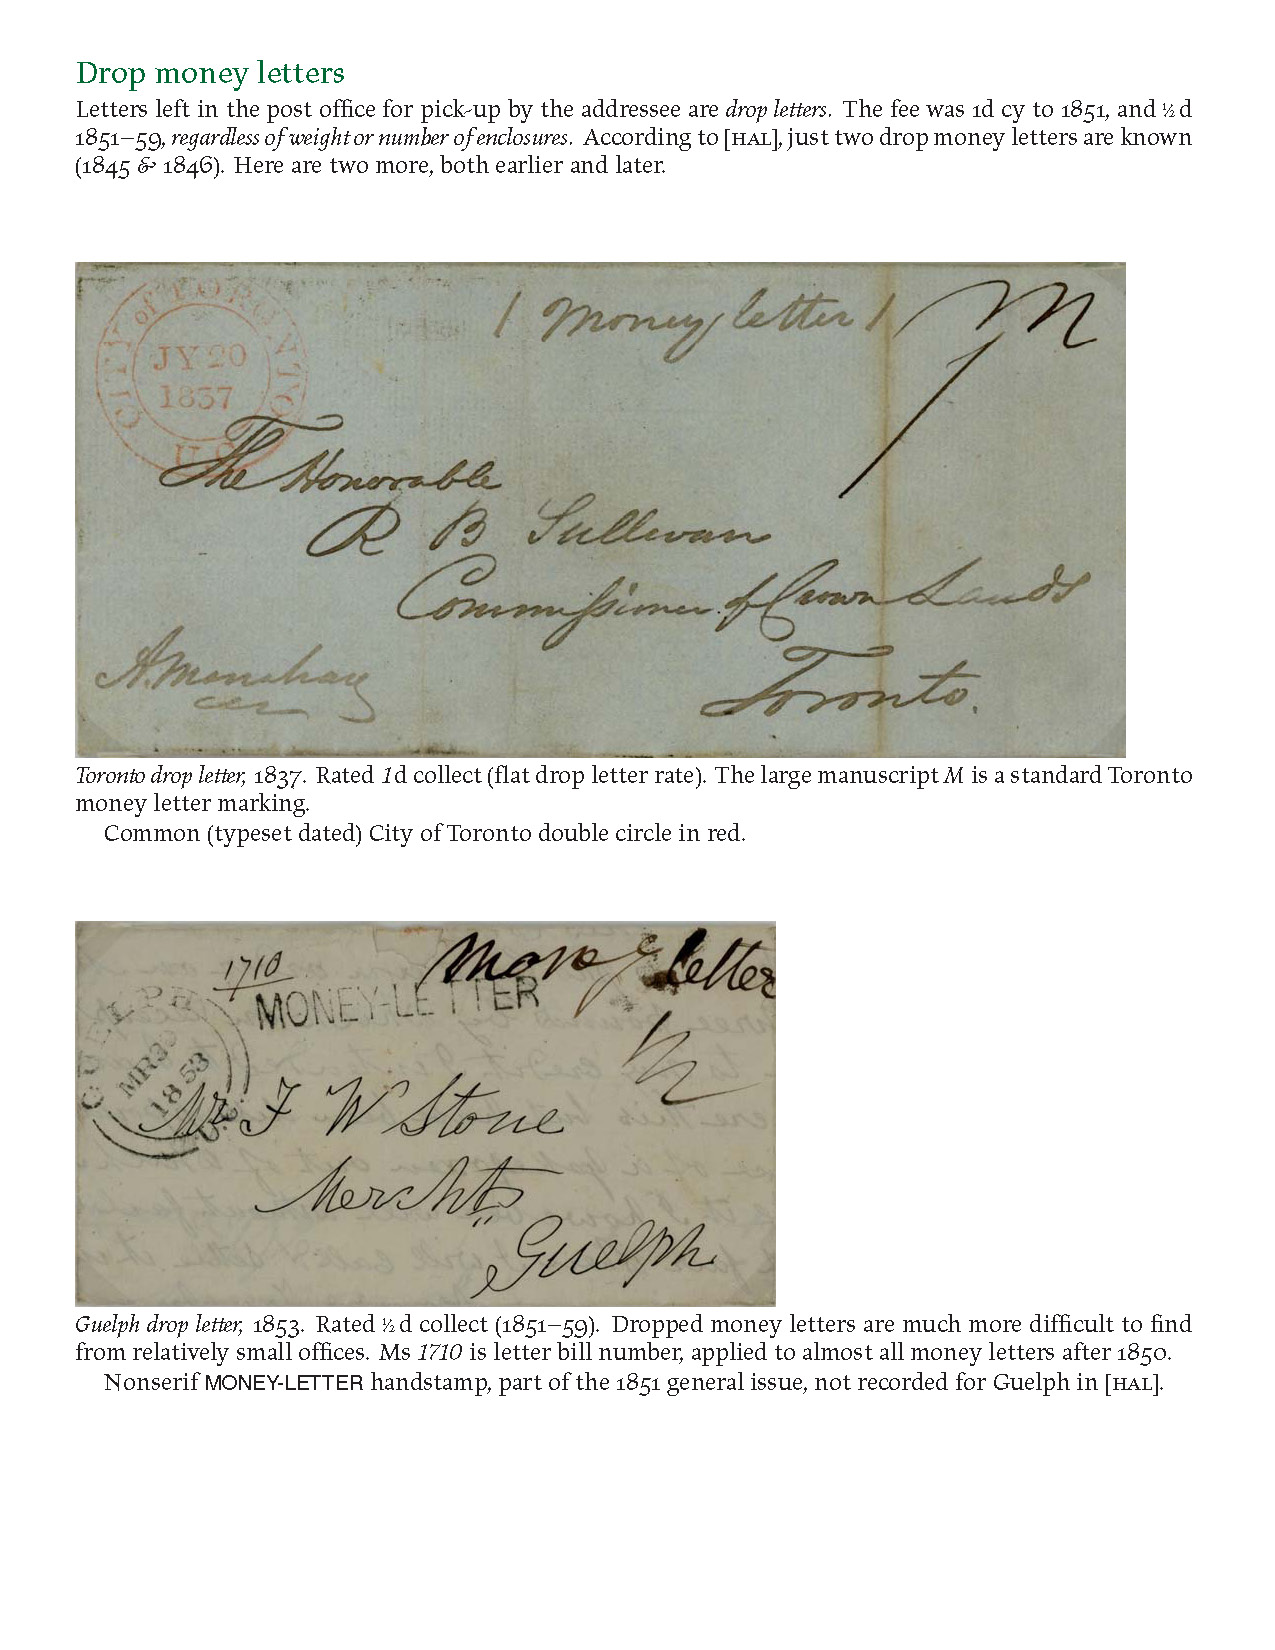 Drop money letters
Letters left in the post office for pick-up by the addressee are drop letters. The fee was 1d cy to 1851, and ½ d
1851–59, regardless of weight or number of enclosures. According to [HAL], just two drop money letters are known
(1845 & 1846). Here are two more, both earlier and later.
CITY of TORONTO
JY 20
1837
U.C.
/ Money letter /
M
The Honorable
R B Sullivan
Commissioner of Crown Lands
Toronto.
Toronto drop letter, 1837. Rated 1d collect (flat drop letter rate). The large manuscript M is a standard Toronto
money letter marking.
Common (typeset dated) City of Toronto double circle in red.
1710
Money letter
MONEY-LETTER
GUELPH
1853
Mr F W Stone
Mercht
Guelph
Guelph drop letter, 1853. Rated ½ d collect (1851–59). Dropped money letters are much more difficult to find
from relatively small offices. Ms 1710 is letter bill number, applied to almost all money letters after 1850.
Nonserif MONEY-LETTER handstamp, part of the 1851 general issue, not recorded for Guelph in [HAL].